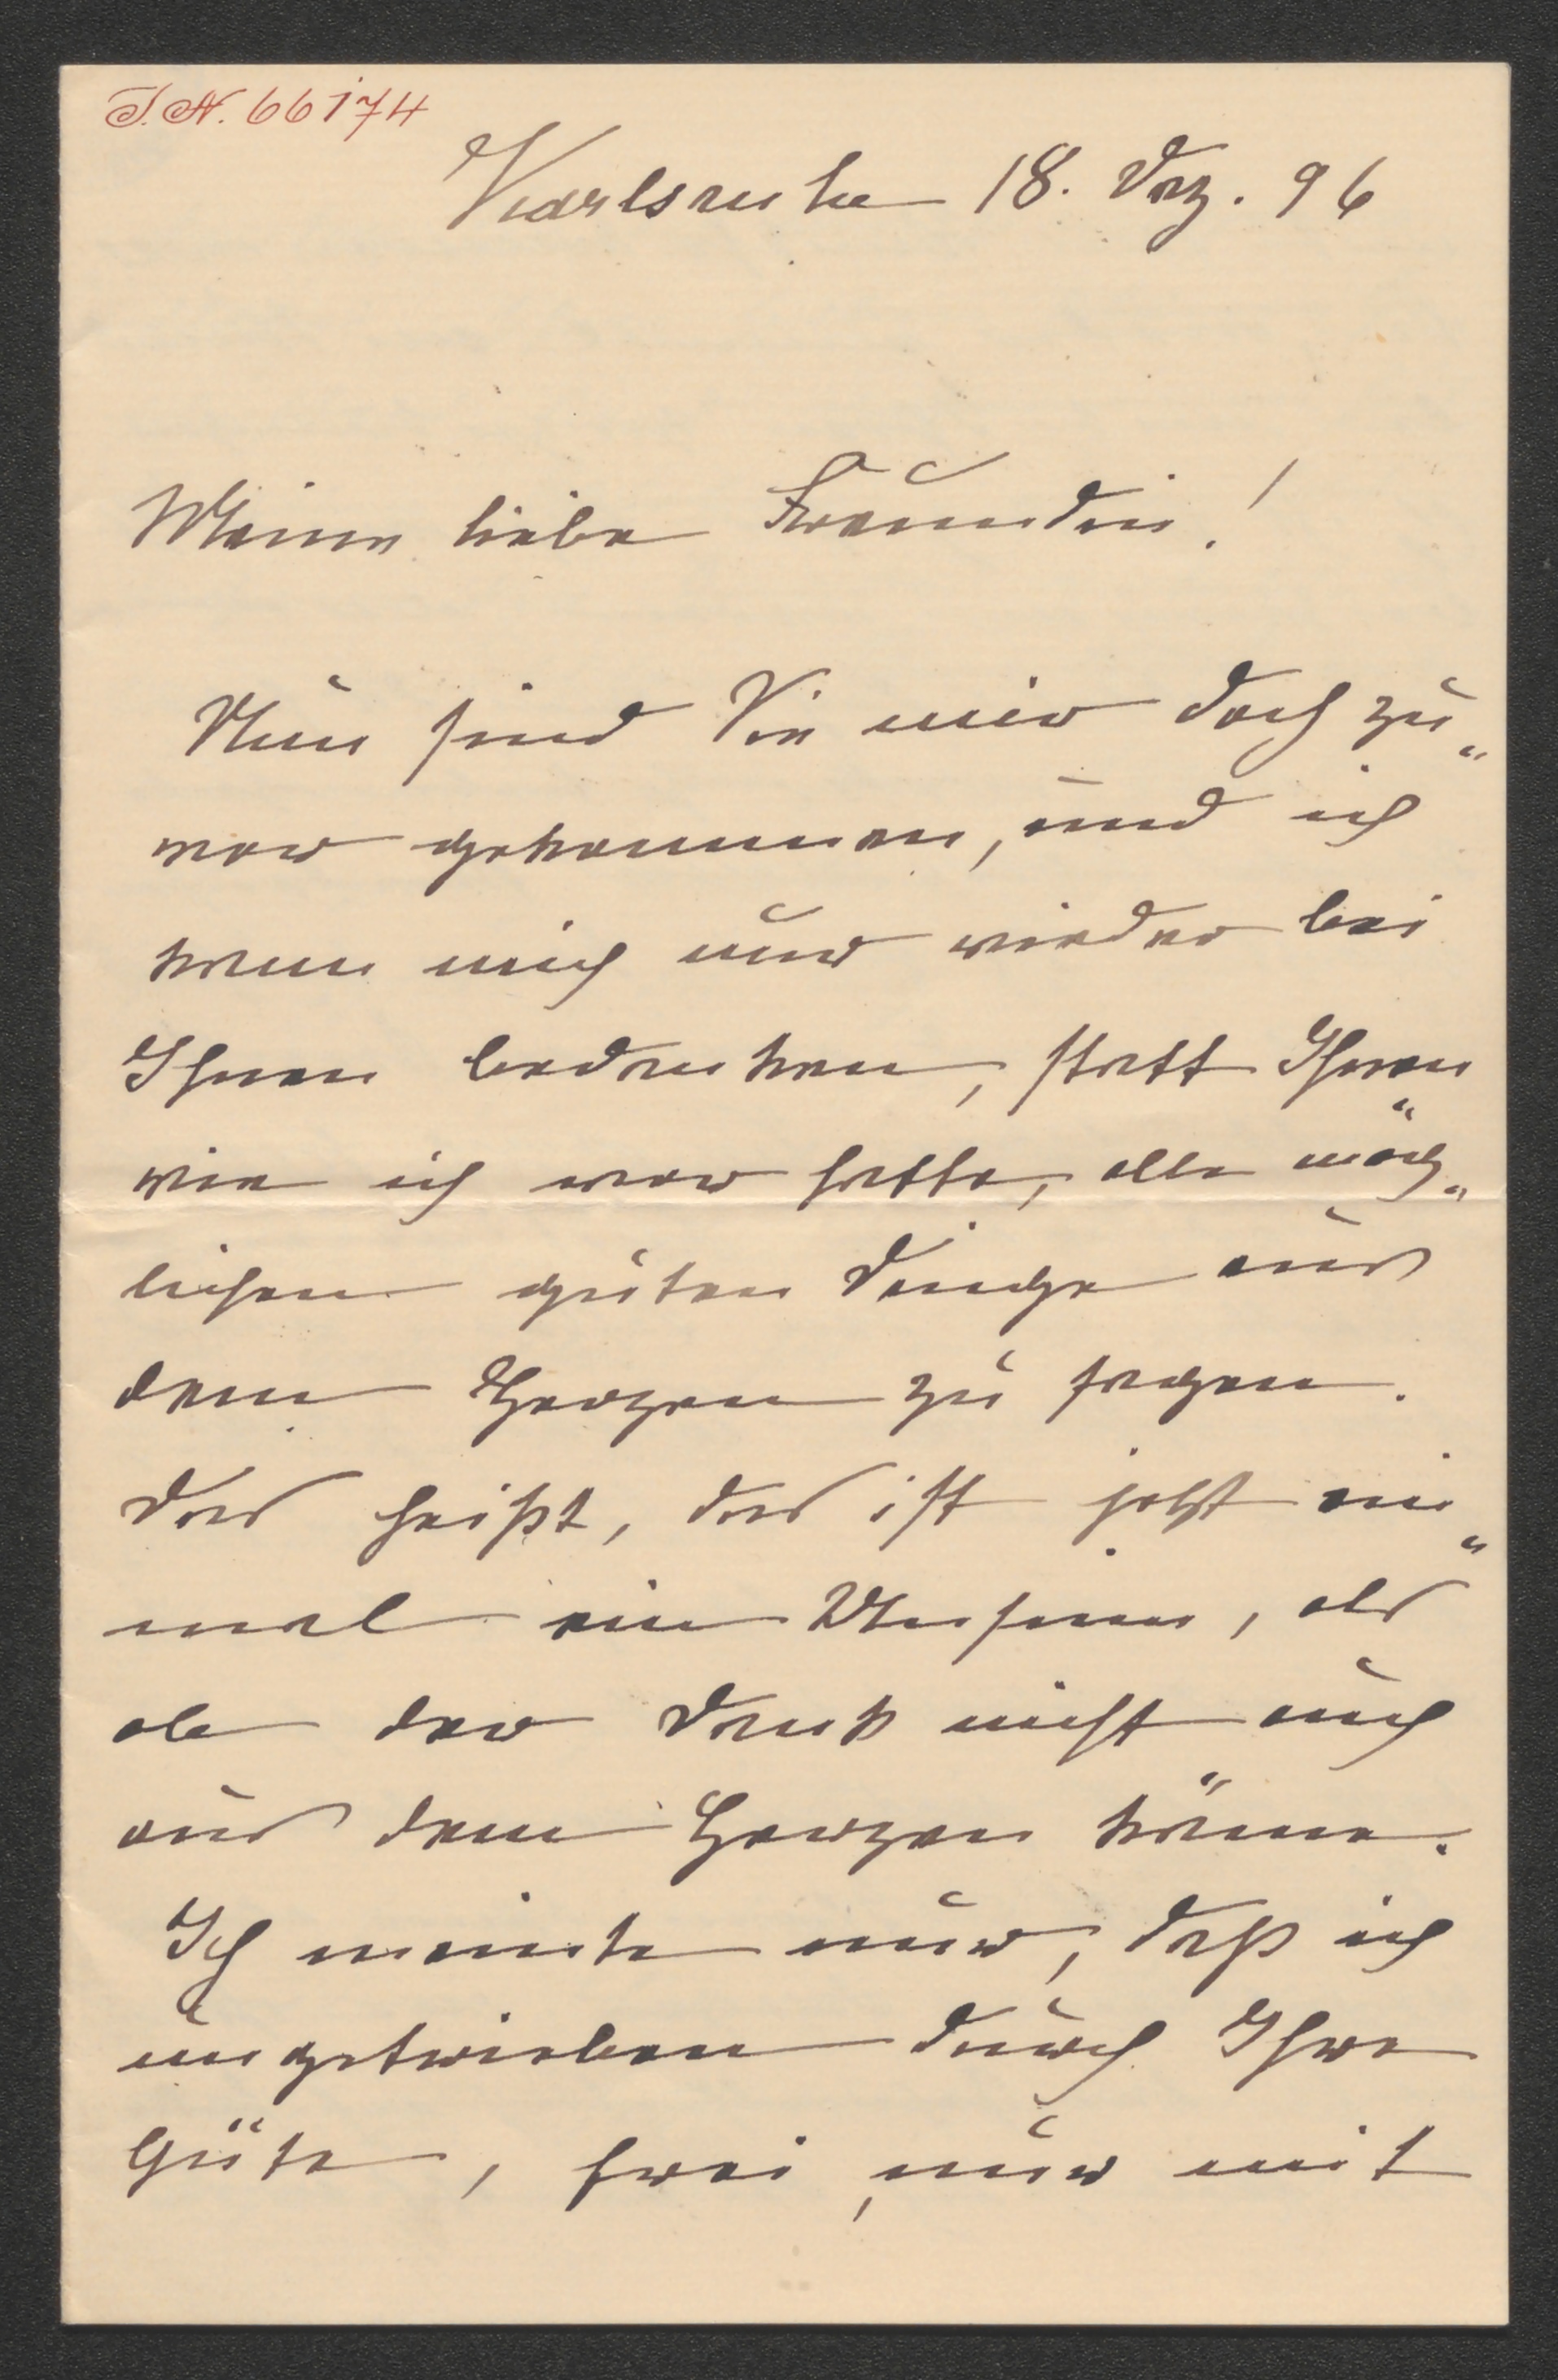 I.N. 66174
Karlsruhe 18. Dez. 96
Meine liebe Freundin!
Nun sind Sie mir doch zu„
vor gekommen, und ich
kann mich nur wieder bei
Ihnen bedanken, statt Ihnen
wie ich vor hatte, alle mög„
lichen guten Dinge aus
dem Herzen zu sagen.
Das heißt, das ist jetzt ein„
mal ein Unsinn, als
ob der Dank nicht auch
aus dem Herzen käme.
Ich meinte nur, daß ich
ungetrieben durch Ihre
Güte, frei, nur mit